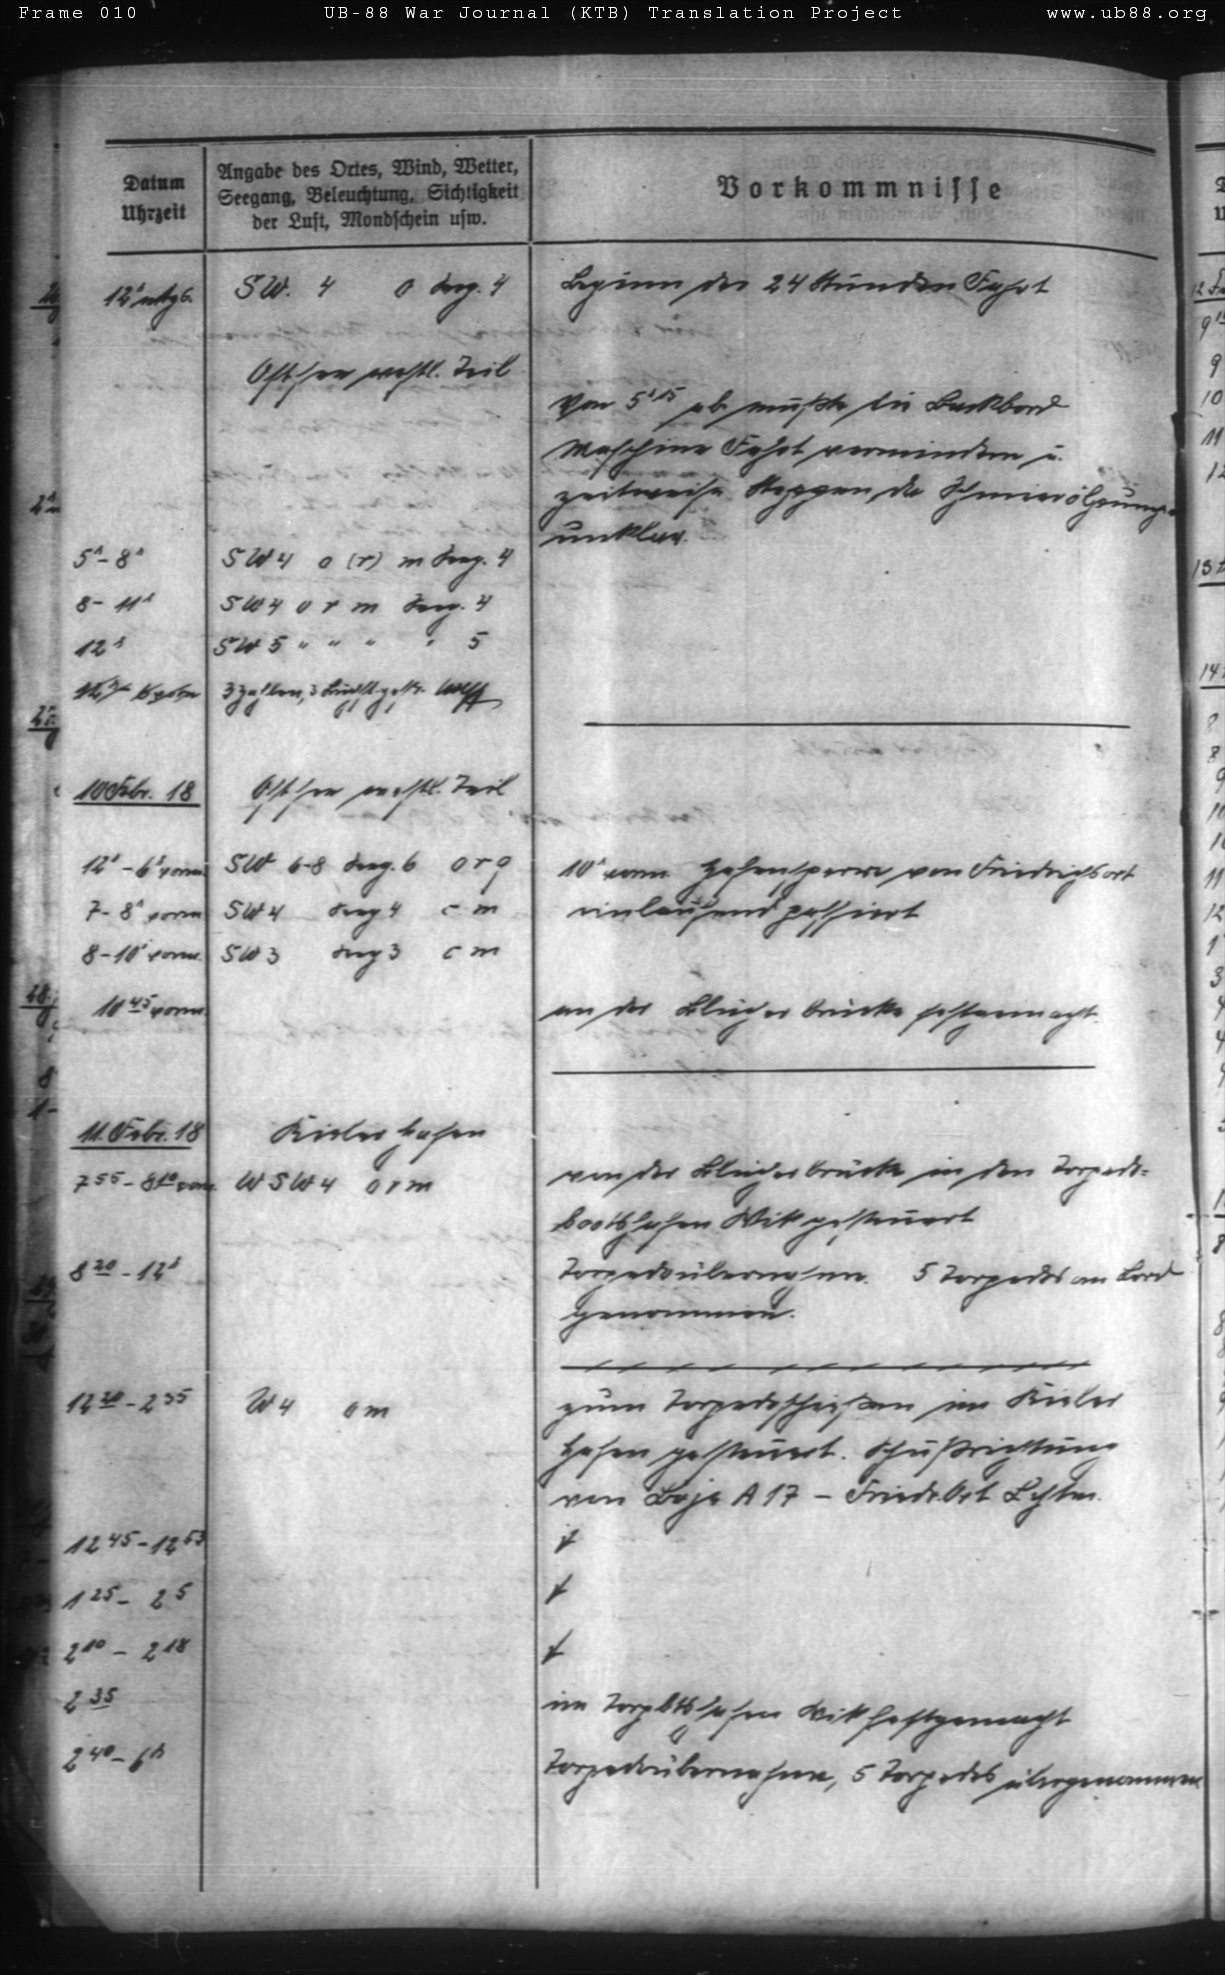 Frame 010 UB-88 War Journal (KTB) Translation Project www.ub88.org
Datum
Uhrzeit
Angabe des Ortes, Wind, Wetter,
Seegang, Beleuchtung, Sichtigkeit
der Luft, Mondschein usw.
Vorkommnisse
12h mtgs. SW. 4 o Seeg. 4 Beginn der 24 Stunden Fahrt
Ostsee westl. Teil
Von 5h15 ab mußte die Backbord
Maschine Fahrt vermindern u.
zeitweise Stoppen da Schmierölpumpe
unklar.
5h-8h SW4 o (r) m Seeg. 4
8-11h SW4 o r m Seeg. 4
12h SW5 " " " " 5
10 Febr. 18 Ostsee westl. Teil
12h-6h vorm. SW 6-8 Seeg. 6 o r q 10h vorm Hafensperre von Friedrichsort
7-8h vorm SW4 Seeg 4 c m einlaufend passiert
8-10h vorm. SW3 Seeg 3 c m
10 45 vorm. an der Blücherbrücke festgemacht.
11. Febr. 18 Kieler Hafen
7 55 - 8 10 vorm WSW4 o r m von der Blücherbrücke in den Torpedo-
bootshafen Wik gesteuert
8 20 - 12h Torpedoübernahme. 5 Torpedos an Bord
genommen.
12 20 - 2 35 W4 o m zum Torpedoschießen im Kieler
Hafen gesteuert. Schußrichtung
von Boje A 17 - Friedr.Ort Lchttm.
12 45 - 12 53
1 25 - 2 5
2 10 - 2 18
2 35 im Torpbtshafen Wik festgemacht
2 40 - 6h Torpedoübernahme, 5 Torpedos übergenommen